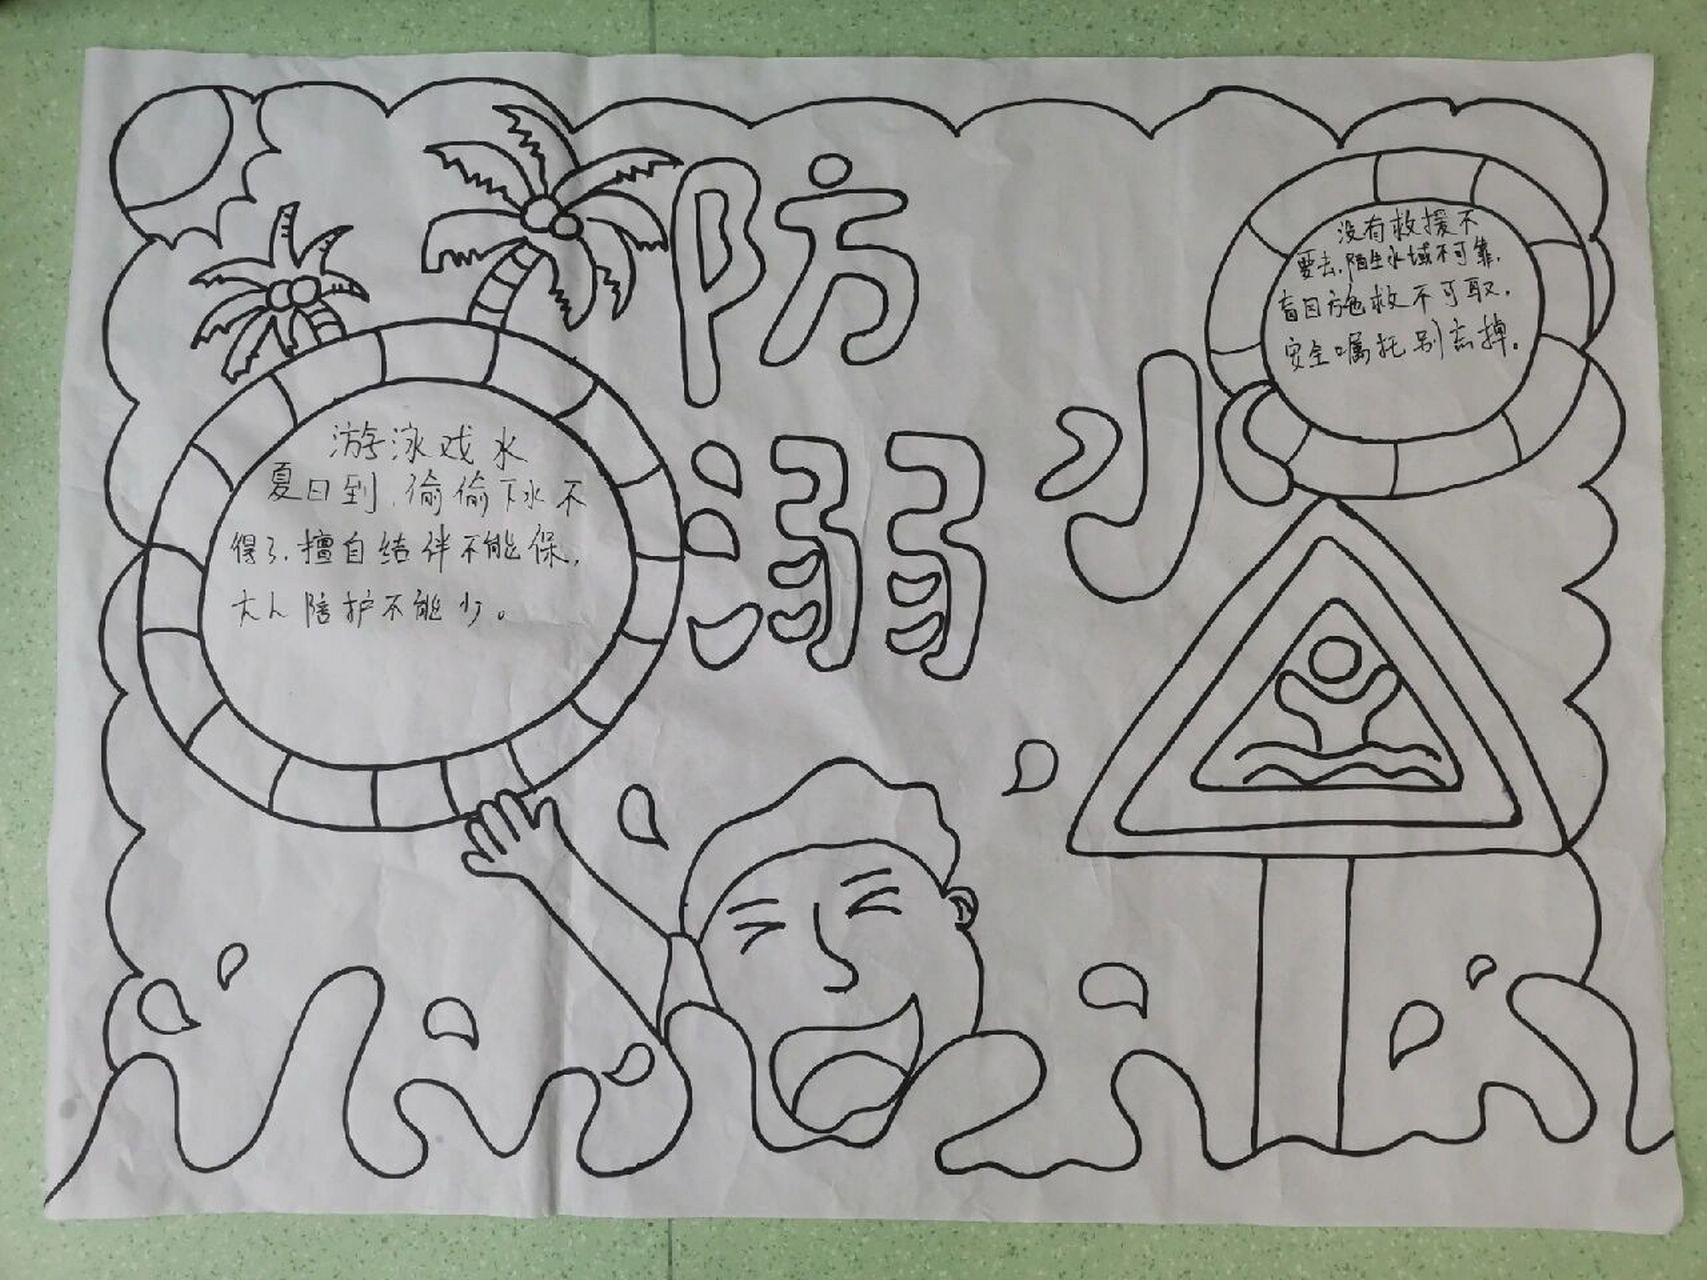 防
溺
水
游泳戏水
夏日到,偷偷下水不
得了,擅自结伴不能保,
大人陪护不能少。
没有救援不
要去,陌生水域不可靠,
盲目施救不可取,
安全嘱托别忘掉。